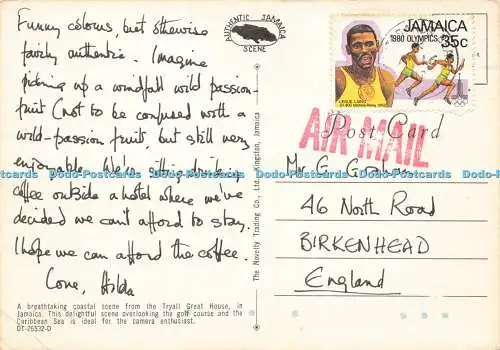 Funny colours, but otherwise
fairly authentic. Imagine
picking up a windfall wild passion-
fruit (not to be confused with a
wild-passion fruit, but still very
enjoyable. We're sitting drinking
coffee outside a hotel where we've
decided we can't afford to stay.
I hope we can afford the coffee.
Love, Hilda
A breathtaking coastal scene from the Tryall Great House, in
Jamaica. This delightful scene overlooking the golf course and the
Caribbean Sea is ideal for the camera enthusiast.
DT-26532-D
AUTHENTIC JAMAICA
SCENE
The Novelty Trading Co., Ltd., Kingston, Jamaica
JAMAICA
1980 OLYMPICS
35c
LESLIE LAING
AIR MAIL
Post Card
Mr G
46 North Road
BIRKENHEAD
England
Dodo-Postcards Dodo-Postcards Dodo-Postcards Dodo-Postcards